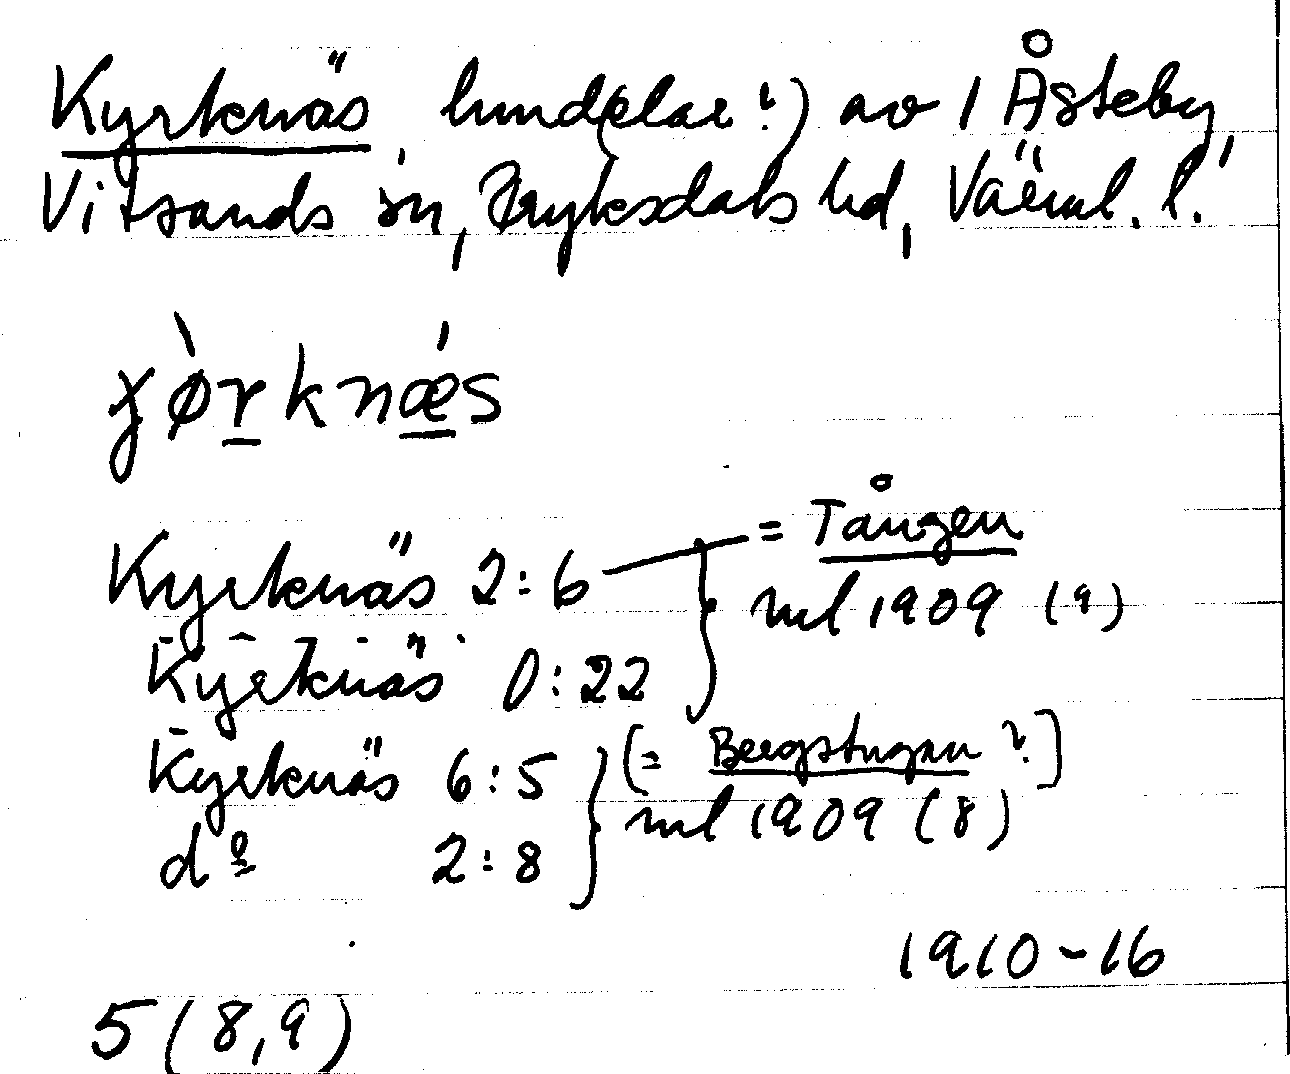 Kyrknäs hmdelar?) av 1 Åsteby,
Vitsands sn, Fryksdals hd, Värml. l.
knæs
Kyrknäs 2:6 = Tången
nul 1909 (9)
Kyrknäs 0:22
Kyrknäs 6:5 [= Bergstugan?]
do 2:8 nul 1909 (8)
1910-16
5 (8,9)